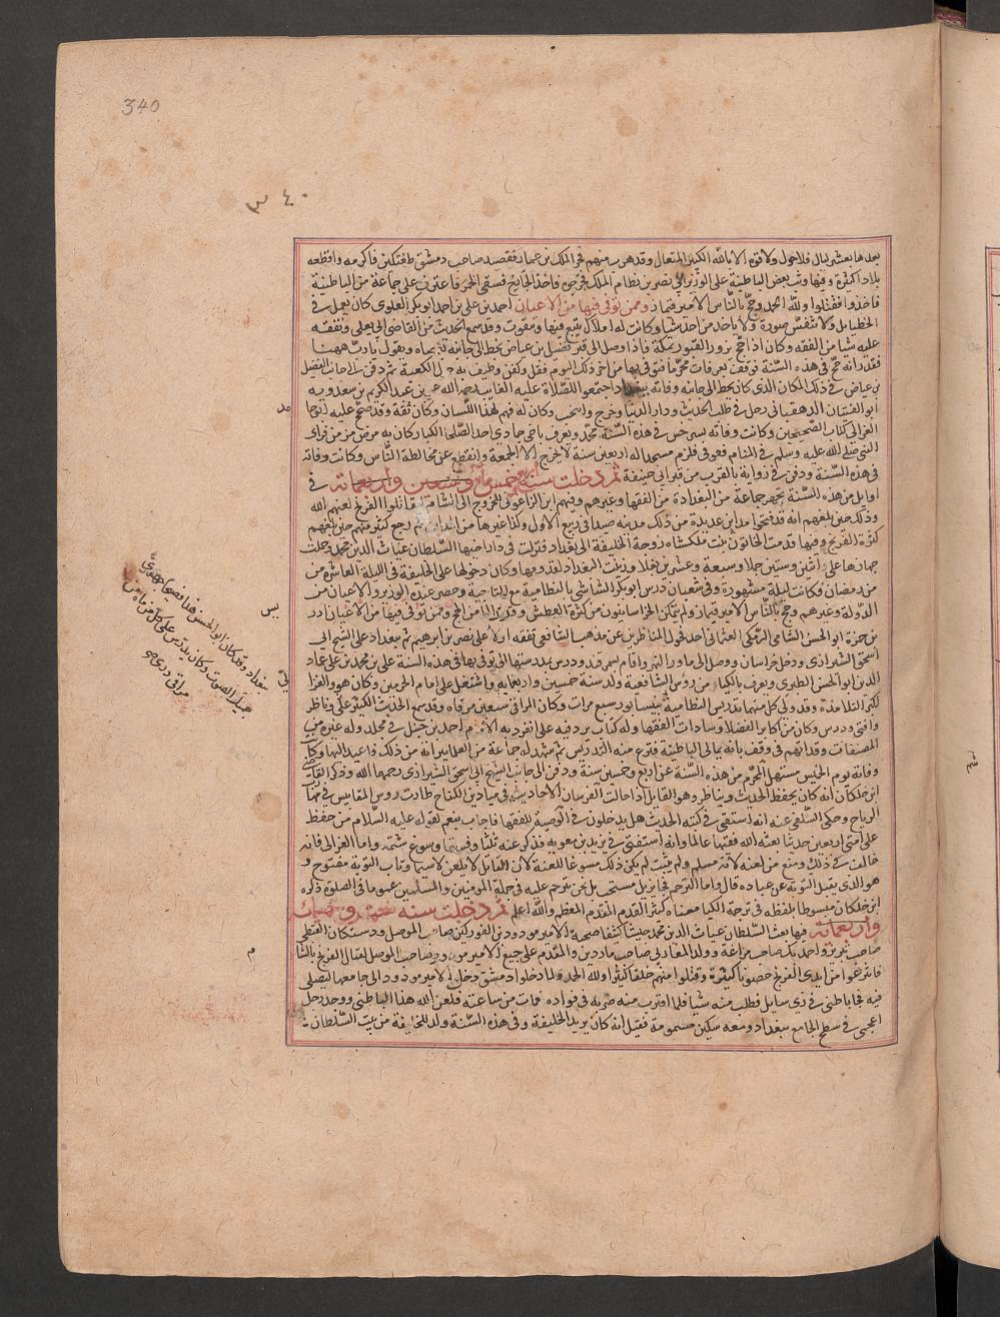 340
٣٤٠
بعدها بعشر ليال فلا حول ولا قوة الا بالله الكبير المتعال وقد هرب منهم فخر الملك بن عمار فقصد صاحب دمشق طغتكين فاكرمه واقطعه
بلادا كثيرة وفيها وثب بعض الباطنية على الوزير ابي نصر بن نظام الملك فجرحوه فاخذ الجارح فسقى الخمر فاعترف على جماعة من الباطنية
فاخذوا فقتلوا ولله الحمد وحج بالناس الامير قيماز وممن توفى فيها من الاعيان احمد بن علي بن احمد ابو بكر العلوى كان يعمل في
الحيطان ولا ينقش صورة ولا ياخذ من احد شيا وكانت له املاك ينتفع منها ويتقوت وقد سمع الحديث من القاضى ابى يعلى وتفقه
عليه شيا من الفقه وكان اذا حج يزور القبور بمكة فاذا وصل الى قبر فضيل بن عياض يخط الى جانبه بعصاه ويقول يا رب ههنا
فقدر انه حج في هذه السنة فوقف بعرفات محرما فتوفى بها من اخر ذلك اليوم فغسل وكفن وطيف به حول الكعبة ثم دفن الى جانب الفضيل
بن عياض في ذلك المكان الذى كان يخط الى جانبه وفاته ببغداد اجتمعوا للصلاة عليه الغائب رحمه الله عمر بن عبد الكريم بن سعدويه
ابو الفتيان الدهقانى رحل في طلب الحديث ودار الدنيا وخرج وانتخب وكان له فهم لهذا اللسان وكان ثقة وقد صحح عليه ابو حامد
الغزالى كتاب الصحيحين وكانت وفاته بسرخس في هذه السنة محمد ويعرف باخى حمادى احد الصلحا الكبار كان به مرض مزمن فراى
النبى صلى الله عليه وسلم في المنام فعوفى فلزم مسجدا له اربعين سنة لا يخرج الا الى الجمعة وانقطع عن مخالطة الناس وكانت وفاته
في هذه السنة ودفن في زواية بالقرب من قبر ابي حنيفة ثم دخلت سنة اربع وخمس مائة في
اوايل من هذه السنة تجهز جماعة من البغداددة من الفقها وغيرهم وفيهم ابن الزاغونى للخروج الى الشام لقتال الفرنج لعنهم الله
وذلك حين بلغهم انه قد فتحوا مداين عديدة من ذلك مدينة صيدا في ربيع الاول وكذا غيرها من المداين ثم رجع كثير منهم حين بلغهم
كثرة الفرنج وفيها قدمت الخاتون بنت ملكشاه زوجة الخليفة الى بغداد فنزلت في دار اخيها السلطان غياث الدين محمد وحملت
جهازها على اثنين وستين جملا وسبعة وعشرين بغلا وزينت البغداد لقدومها وكان دخولها على الخليفة في الليلة العاشرة من
من رمضان فكانت ليلة مشهورة وفي شعبان درس ابو بكر الشاشى بالنظامية مع التاجية وحضر عنده الوزير والاعيان من
الدولة وغيرهم وحج بالناس الامير قيماز ولم يتمكن الخراسانيون من كثرة العطش وقلة الماء من الحج وممن توفى فيها من الاعيان ادريس
بن حمزة ابو الحسن الشامى الرملى العثمانى احد فحول المناظرين عن مذهب الشافعى تفقه اولا على نصر بن ابرهيم ثم ببغداد على الشيخ ابي
اسحق الشيرازى ودخل خراسان ووصل الى ماوراء النهر واقام بسمرقند ودرس بمدرستها الى توفى بها في هذه السنة على بن محمد بن على عماد
الدين ابو الحسن الطبرى ويعرف بالكيا من رؤس الشافعية ولد سنة خمسين واربعمائة واشتغل على امام الحرمين وكان هو والغزالى
اكبر التلامذة وقد ولى كل منهما تدريس النظامية بنيسابور سبع مرات وكان المراقى سبعين مرقاة وقد سمع الحديث الكثير وناظر
وافتى ودرس وكان من اكابر الفضلا وسادات الفقها وله كتاب يرد فيه على انفرد به الامام احمد بن حنبل في مجلد وله غيره من
المصنفات وقد اتهم في وقت بانه يمالى الباطنية فنزع منه التدريس ثم شهد له جماعة من العلما ببرائة من ذلك فاعيد اليها وكانت
وفاته يوم الخميس مستهل المحرم من هذه السنة عن اربع وخمسين سنة ودفن الى جانب الشيخ ابى اسحق الشيرازى رحمها الله وذكر القاضى
ابن خلكان انه كان يحفظ الحديث ويناظر وهو القايل اذا جالت الفرسان الاحاديث في ميادين الكفاح طارت روس المقاييس في مهاب
الرياح وحكى السلفى عنه انه استفتى في كتبة الحديث هل يدخلون في الوصية للفقها فاجاب بنعم لقوله عليه السلام من حفظ
على امتى اربعين حديثا بعثه الله فقيها عالما وانه استفتى في يزيد بن معوية فذكر عنه تلعبا وفسقا وسوغ شتمه واما الغزالى فانه
خالف في ذلك ومنع من لعنه لانه مسلم ولم يثبت لم يكن ذلك مسوغا للعنة لان القاتل لا يلعن لا سيما وباب التوبة مفتوح و
هو الذى يقبل التوبة عن عباده قال واما الترحم فجايز بل مستحب بل نحن نترحم عليه في جملة المومنين والمسلمين عموما في الصلوة ذكره
ابن خلكان مبسوطا بلفظه في ترجمة الكيا معناه كبير القدم المقدم المعظم والله اعلم ثم دخلت سنة خمس وخمسمائة
فيها بعث السلطان غياث الدين محمد جيشا كثيفا صحبة الامير مودود بن التونتكين صاحب الموصل
صاحب تبريز واحمديك صاحب مراغة وولد المغازى صاحب ماردين والمقدم على جميع الامير مودود صاحب الموصل لقتال الفرنج بالشام
فانتزعوا من ايدى الفرنج حصونا كثيرة وقتلوا منهم خلقا كثيرا ولله الحمد ولما دخلوا دمشق دخل الامير مودود الى جامعها ليصلى
فيه فجا باطنى في زى سايل فطلب منه شيا فلما اقترب منه ضربه في فواده فمات من ساعته فلعن الله هذا الباطنى ووجد رجل
اعجمى في سطح الجامع ببغداد ومعه سكين مسمومة فقيل انه كان يريد الخليفة وفي هذه السنة ولد للخليفة من بنت السلطان
بغداد وقد كان ابو الحسن هذا فصيحا جهورى
جميل الصوت وكان يدرس على كل مرقاة من
مراقى